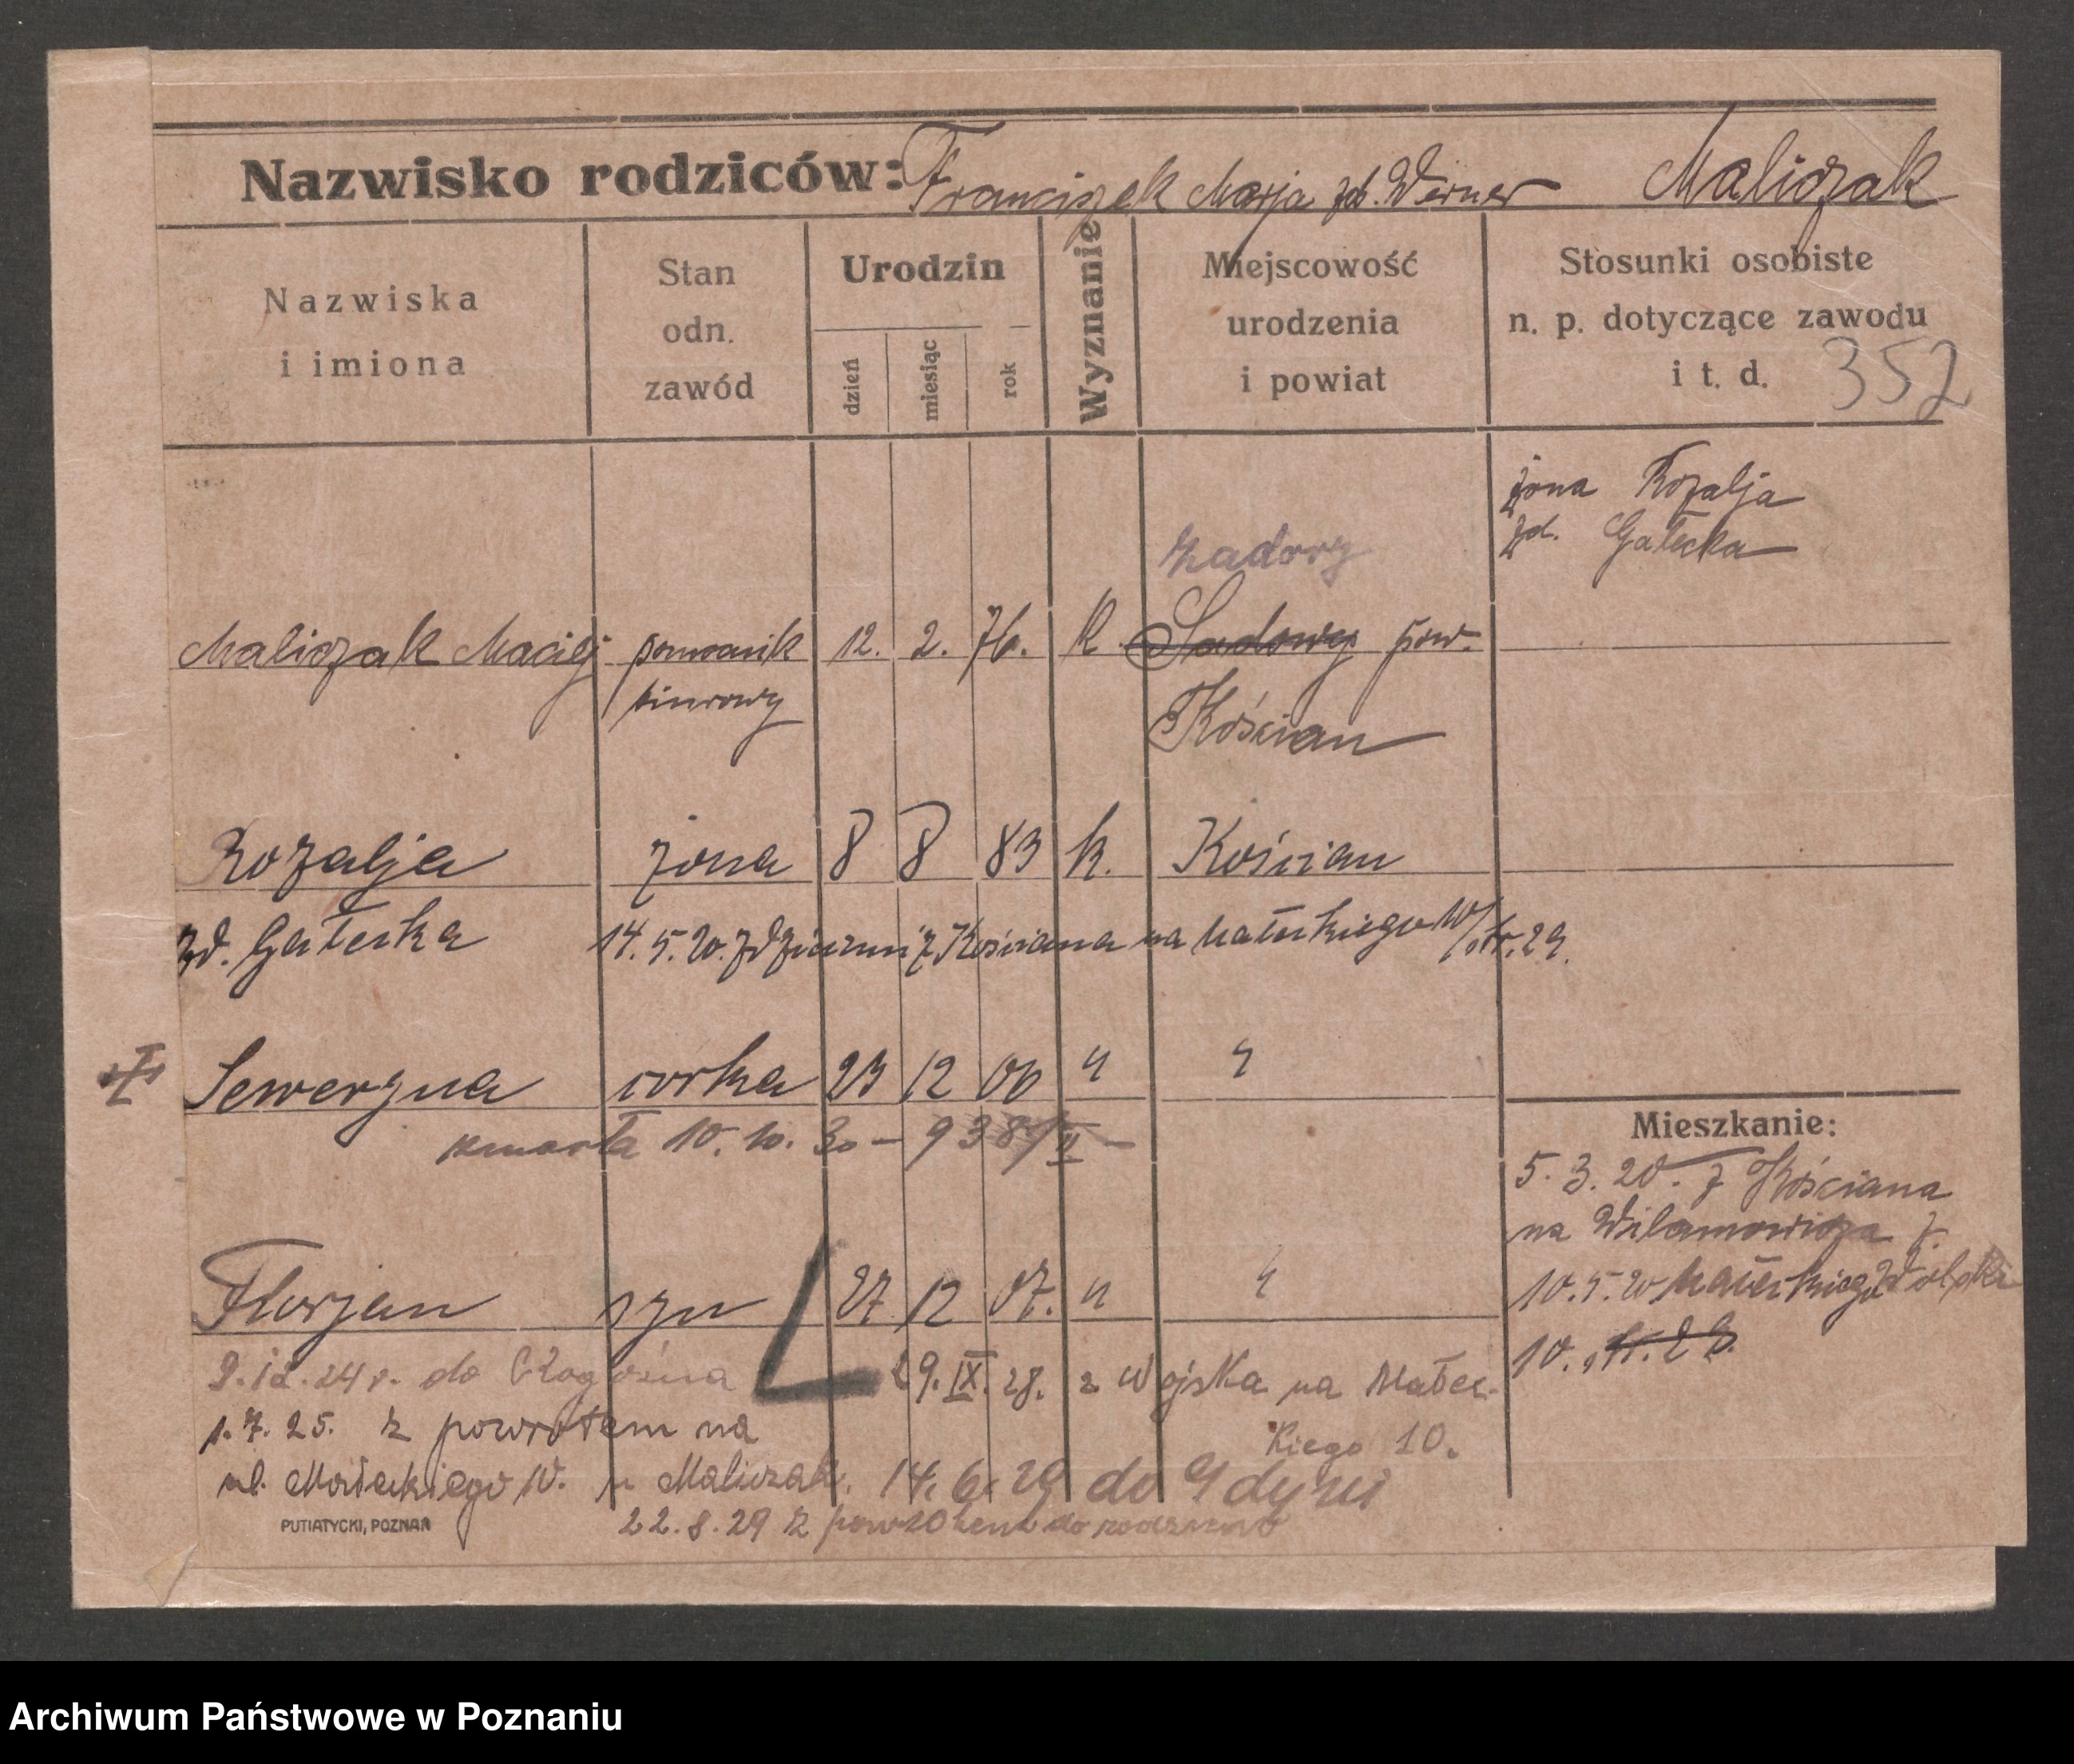 Nazwisko rodziców: Franciszek Marja zd. Werner Maliczak
Nazwiska
i imiona
Stan
odn.
zawód
Urodzin
dzień
miesiąc
rok
Wyznanie
Miejscowość
urodzenia
i powiat
Stosunki osobiste
n. p. dotyczące zawodu
i t. d.
352
żona Rozalja
zd. Gałecka
Zadory
Maliczak Maciej pomocnik 12. 2. 76. k. Sadowy pow.
biurowy Kościan
Rozalja żona 8 8 83 k. Kościan
zd. Gałecka 14. 5. 20. z dziećmi z Kościana na Małeckiego 10/ str. 29.
Seweryna corka 23 12 06 " "
zmarła 10. 10. 30 – 9389 II –
Mieszkanie:
5. 3. 20. z Kościana
na Wilamowicza
10. 5. 20 Małeckiego
10. str. 29.
Florjan syn 27 12 07. " "
9. 12. 24 r. do
29. IX. 28. z Wojska na Małec-
kiego 10.
1. 7. 25. z powrotem na
ul. Małeckiego 10. u Maliczak. 14. 6. 29 do Gdyni
22. 8. 29 z powrotem do rodziców
PUTIATYCKI, POZNAŃ
Archiwum Państwowe w Poznaniu